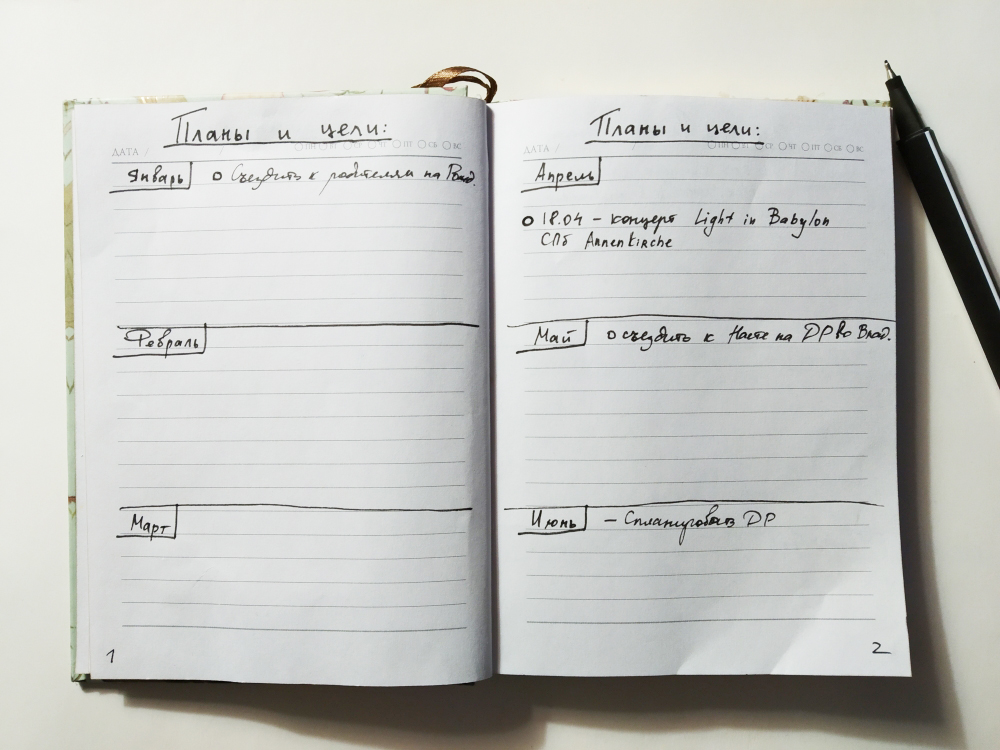 Планы и цели:
ДАТА / /
Январь о Съездить к родителям на Рожд.
Февраль
Март
1
Планы и цели:
ДАТА / / ПН ВТ СР ЧТ ПТ СБ ВС
Апрель
о 18.04 – концерт Light in Babylon
СПб Annenkirche
Май о съездить к Насте на ДР во Влад.
Июнь – Спланировать ДР
2